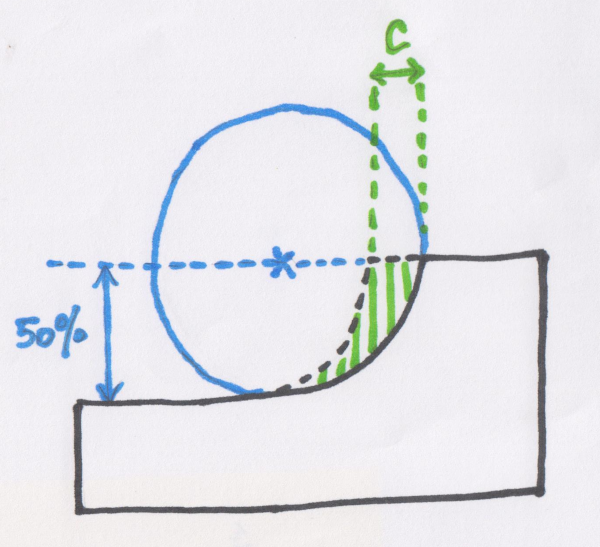 C
50%